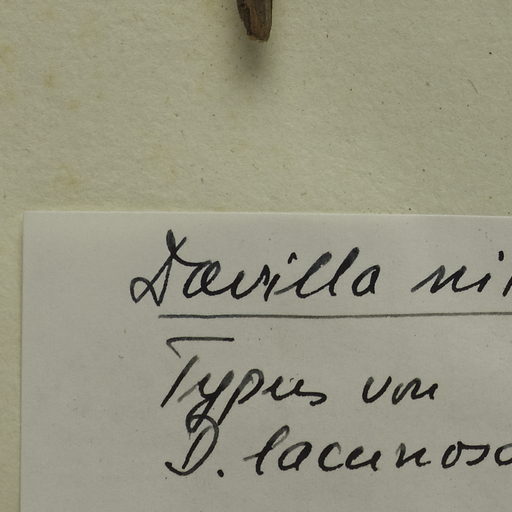 Davilla ni
Typus von
D. lacunosa